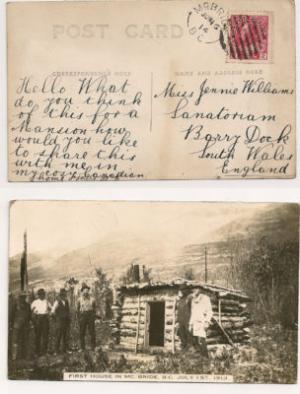 POST CARD
CORRESPONDENCE HERE
NAME AND ADDRESS HERE
McBRIDE
JUN 5
14
B.C.
Hello What
do you think
of this for a
Mansion how
would you like
to share this
with me in
my cosy Canadian
home
Miss Jennie Williams
Sanatorium
Barry Dock
South Wales
England
FIRST HOUSE IN MC. BRIDE, B.C. JULY 1ST. 1913